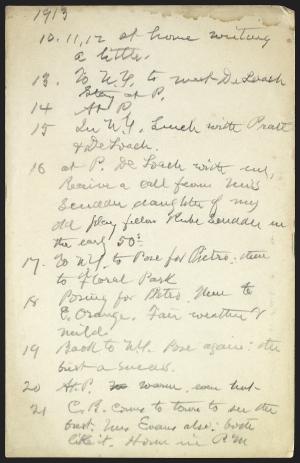 1913
10. 11, 12 at home writing
a little.
13. To N.Y. to meet DeLoach
Stay at P.
14 At P.
15 In N.Y. Lunch with Pratt
& DeLoach.
16 at P. De Loach with me,
Receive a call from Mrs
Scudder daughter of my
old play fellow Rube Scudder in
the early 50s
17. To N.Y. to Pose for Pietro, then
to Floral Park
18 Posing for Pietro then to
E. Orange. Fair weather &
mild.
19 Back to N.Y. Pose again: the
bust a success.
20 At P. warm, even hot-
21 C.B. comes to town to see the
bust. Mrs Evans also; both
like it. Home in P.M